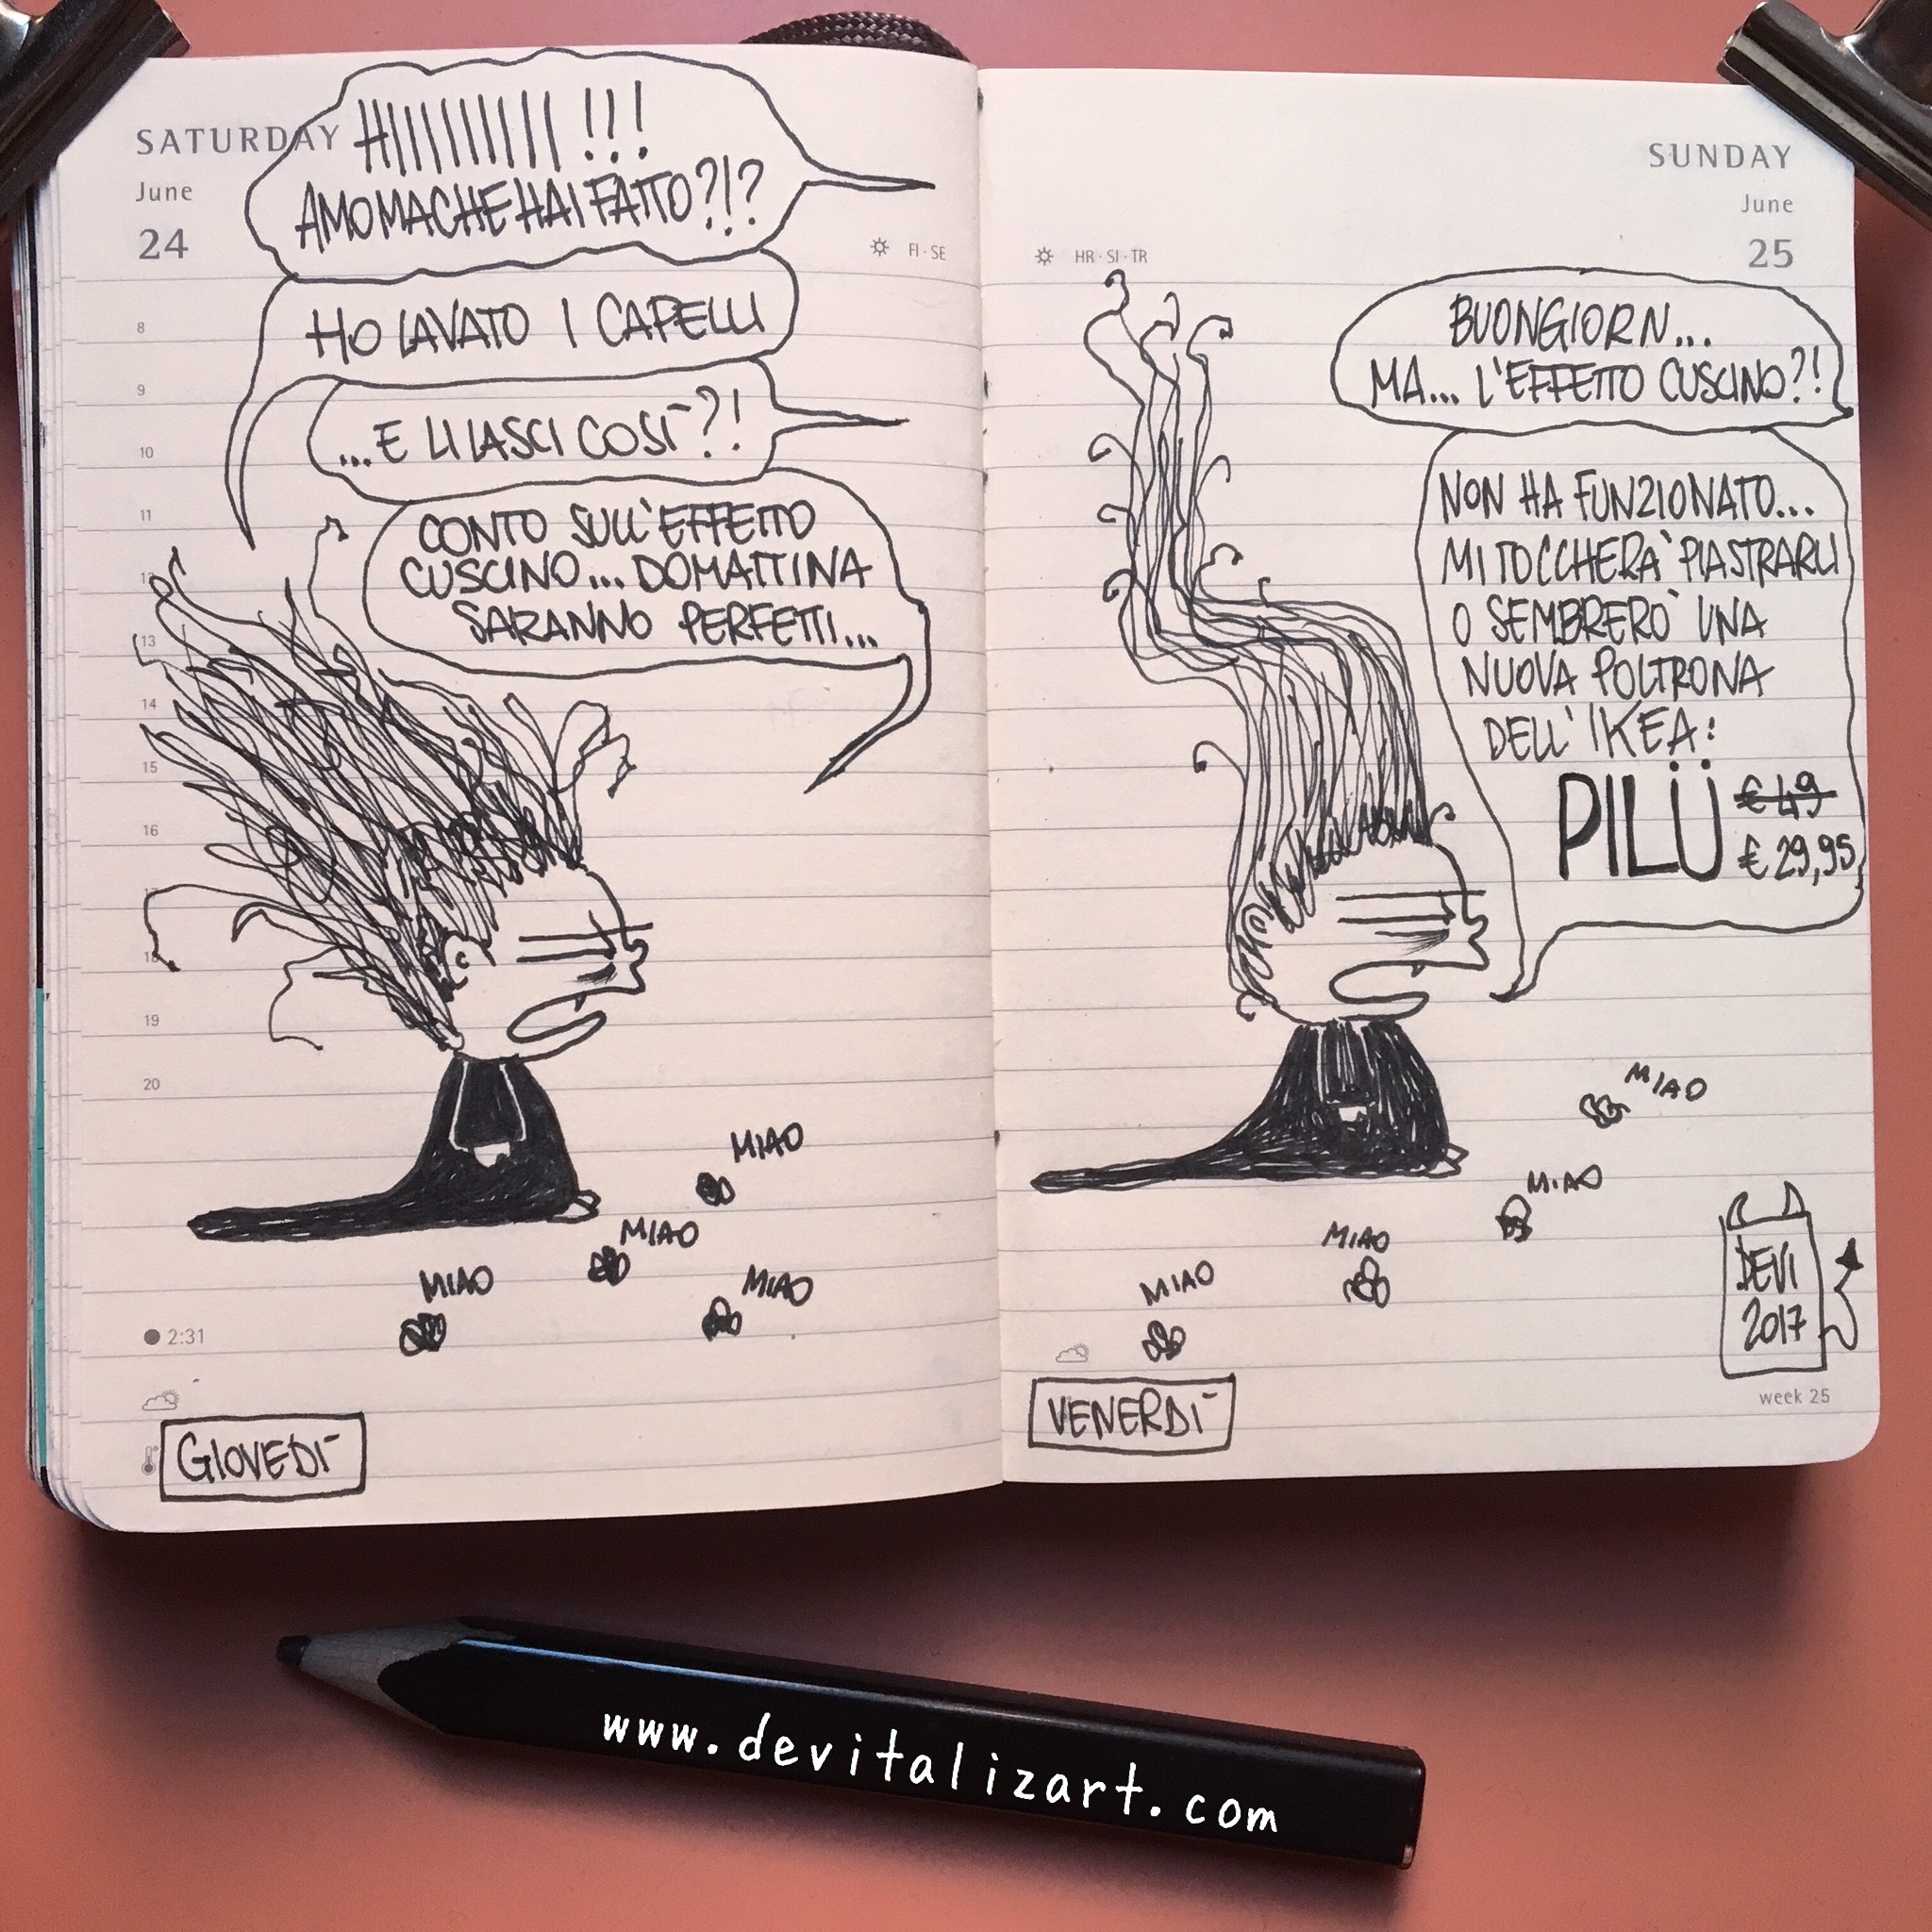 SATURDAY
June
24
FI · SE
HIIIIIIIIII !!!
AMO MA CHE HAI FATTO?!?
HO LAVATO I CAPELLI
...E LI LASCI COSÌ?!
CONTO SULL'EFFETTO
CUSCINO... DOMATTINA
SARANNO PERFETTI...
8
9
10
11
12
13
14
15
16
17
18
19
20
MIAO
MIAO
MIAO
MIAO
2:31
GIOVEDÌ
SUNDAY
June
25
HR · SI · TR
BUONGIORN...
MA... L'EFFETTO CUSCINO?!
NON HA FUNZIONATO...
MI TOCCHERÀ PIASTRARLI
O SEMBRERÒ UNA
NUOVA POLTRONA
DELL'IKEA:
PILÜ € 49
€ 29,95
MIAO
MIAO
MIAO
MIAO
DEVI
2017
week 25
VENERDÌ
www.devitalizart.com